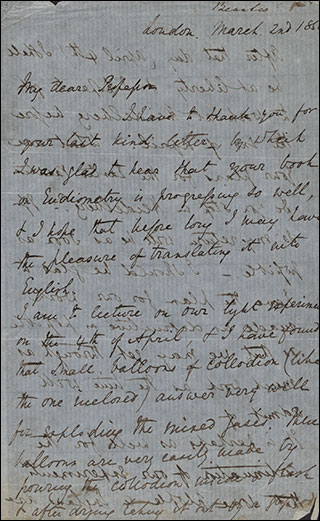 London. March 2nd 18
My dear Professor
I have to thank you for
your last kind letter, by which
I was glad to hear that your book
on Eudiometry is progressing so well,
& I hope that before long I may have
the pleasure of translating it into
English.
I am to lecture on own light experiments
on the 4th of April, & I have found
that small balloons of collodion (like
the one inclosed) answer very well
for exploding the mixed gases. These
balloons are very easily made by
pouring the collodion into a flask
& after drying taking it out